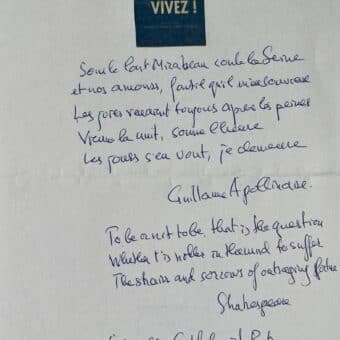 VIVEZ !
Sous le Pont Mirabeau coule la Seine
et nos amours, faut-il qu'il m'en souvienne
Les joies venaient toujours après les peines
Vienne la nuit, sonne l'heure
Les jours s'en vont, je demeure
Guillaume Apollinaire.
To be or not to be, that is the question
Whether t'is nobler in the mind to suffer
The and sorrows of outraging
Shakespeare